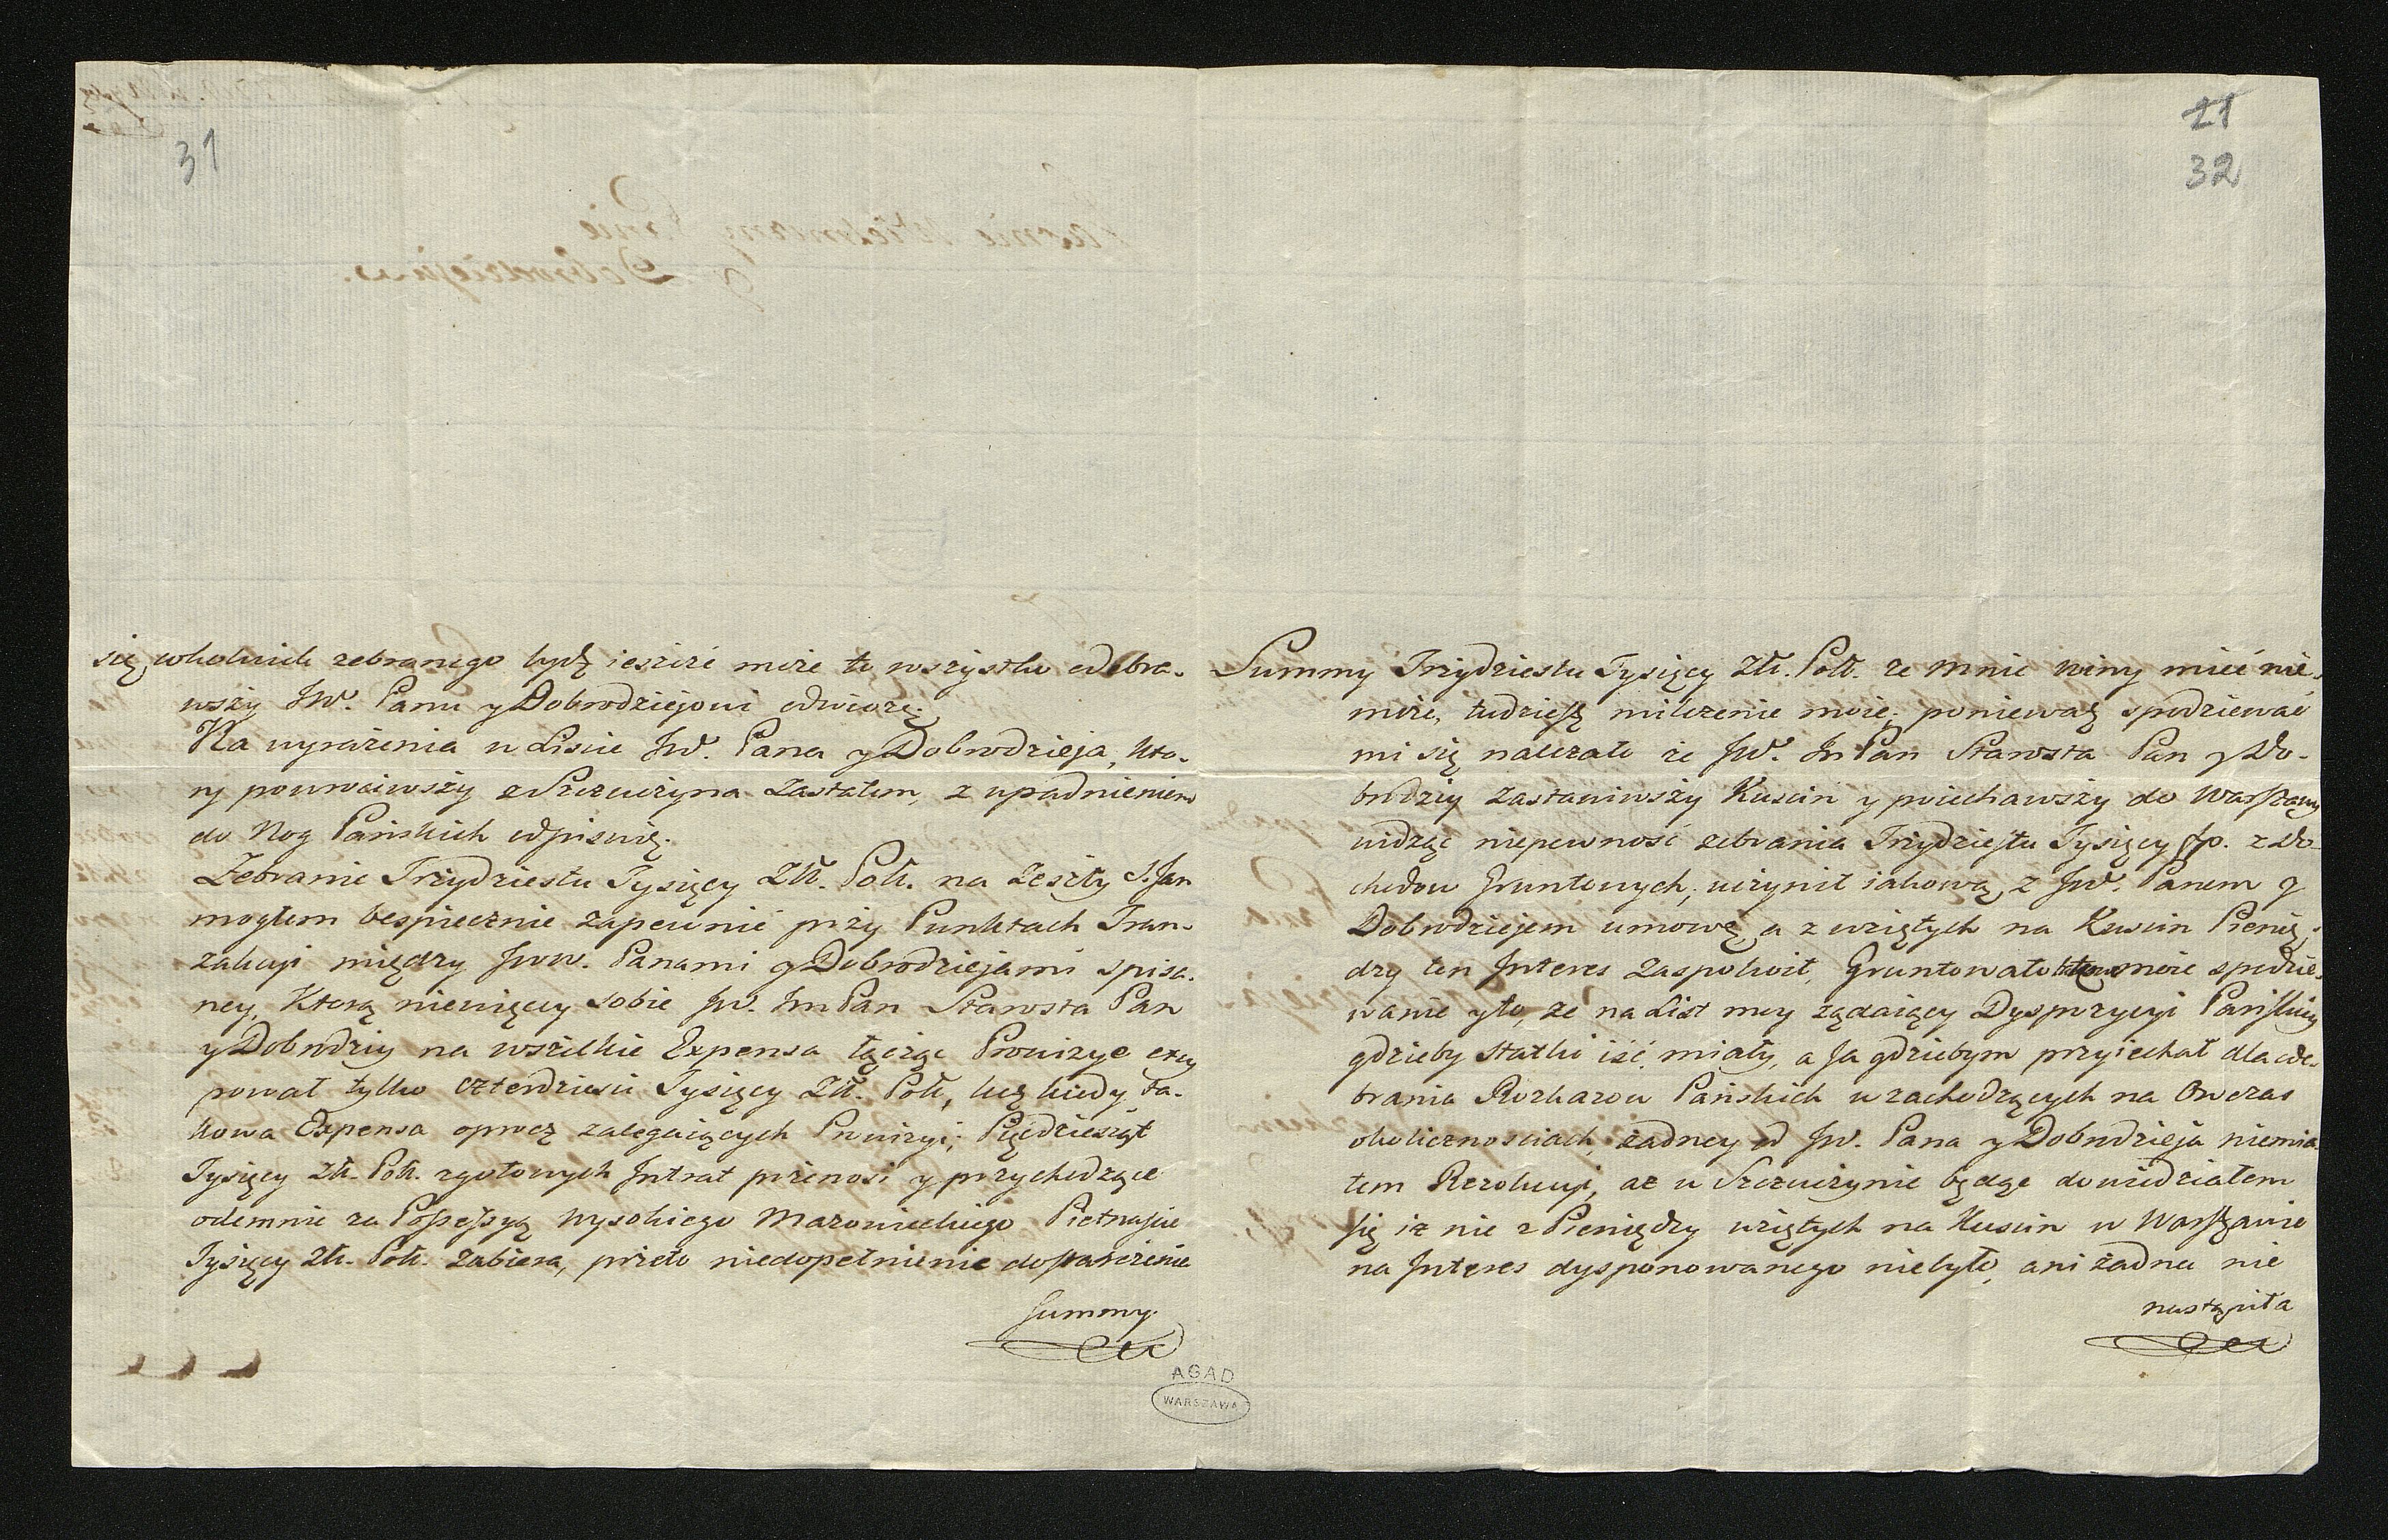 31
się, wkolwiek zebranego bydź ieszcze może to wszystko odebra-
wszy JW. Panu y Dobrodziejowi odwiozę.
Na wyrażenia w Liście JW. Pana y Dobrodzieja, kto-
ry powrociwszy z Szczuczyna zastałem, z upadnieniem
do Nog Pańskich odpisuię.
Zebranie Trzydziestu Tysięcy Zł. Pol. na zeszły S. Jan
mogłem bespiecznie zapewnić przy Punktach Tran-
zakcyi między JWW. Panami y Dobrodziejami spisa-
ney, Ktorą nieniący sobie JW. Im Pan Starosta Pan
y Dobrodziey na wszelkie Expensa łącząc Prowizye exy
pował tylko czterdzieści Tysięcy Zł. Pol., lecz kiedy ta-
kowa Expensa oprocz zalegaiących Prowizyi, Pięćdziesiąt
Tysięcy Zł. Pol. zgotowych Intrat przenosi y przychodzące
odemnie za Possessyą Wysokiego Mazowieckiego Pietnaście
Tysięcy Zł. Pol. zabiera, przeto niedopełnienie dostarczenia
Summy.
21
32
Summy Trzydziestu Tysięcy Zł. Pol. ze mnie winy mieć nie
może, tudziesz milczenie moie; poniewasz spodziewać
mi się należało że JW. Im Pan Starosta Pan y Do-
brodziey zastawiwszy Kuscin y poiechawszy do Warszawy
widząc niepewność zebrania Trzydziestu Tysięcy fp. z do-
chodow Gruntowych, uczynił iakową z JW. Panem y
Dobrodziejem umowę, a z wziętych na Kuscin Pienię-
dzy ten Interes zaspokoił, Gruntowało moie spodzie-
wanie y to, że na List moy żądaiący Dyspozycyi Pańskiey
gdzieby Statki iść miały, a Ja gdziebym przyiechał dla ode-
brania Rozkazow Pańskich w zachodzących na Owczas
okolicznosciach, żadney od JW. Pana y Dobrodzieja niemia-
łem Rezolucyi, aż w Szczuczynie będąc dowiedziałem
się iż nic z Pieniędzy wziętych na Kuscin w Warszawie
na Interes dysponowanego niebyło, ani żadna nie
nastąpiła
AGAD
WARSZAWA